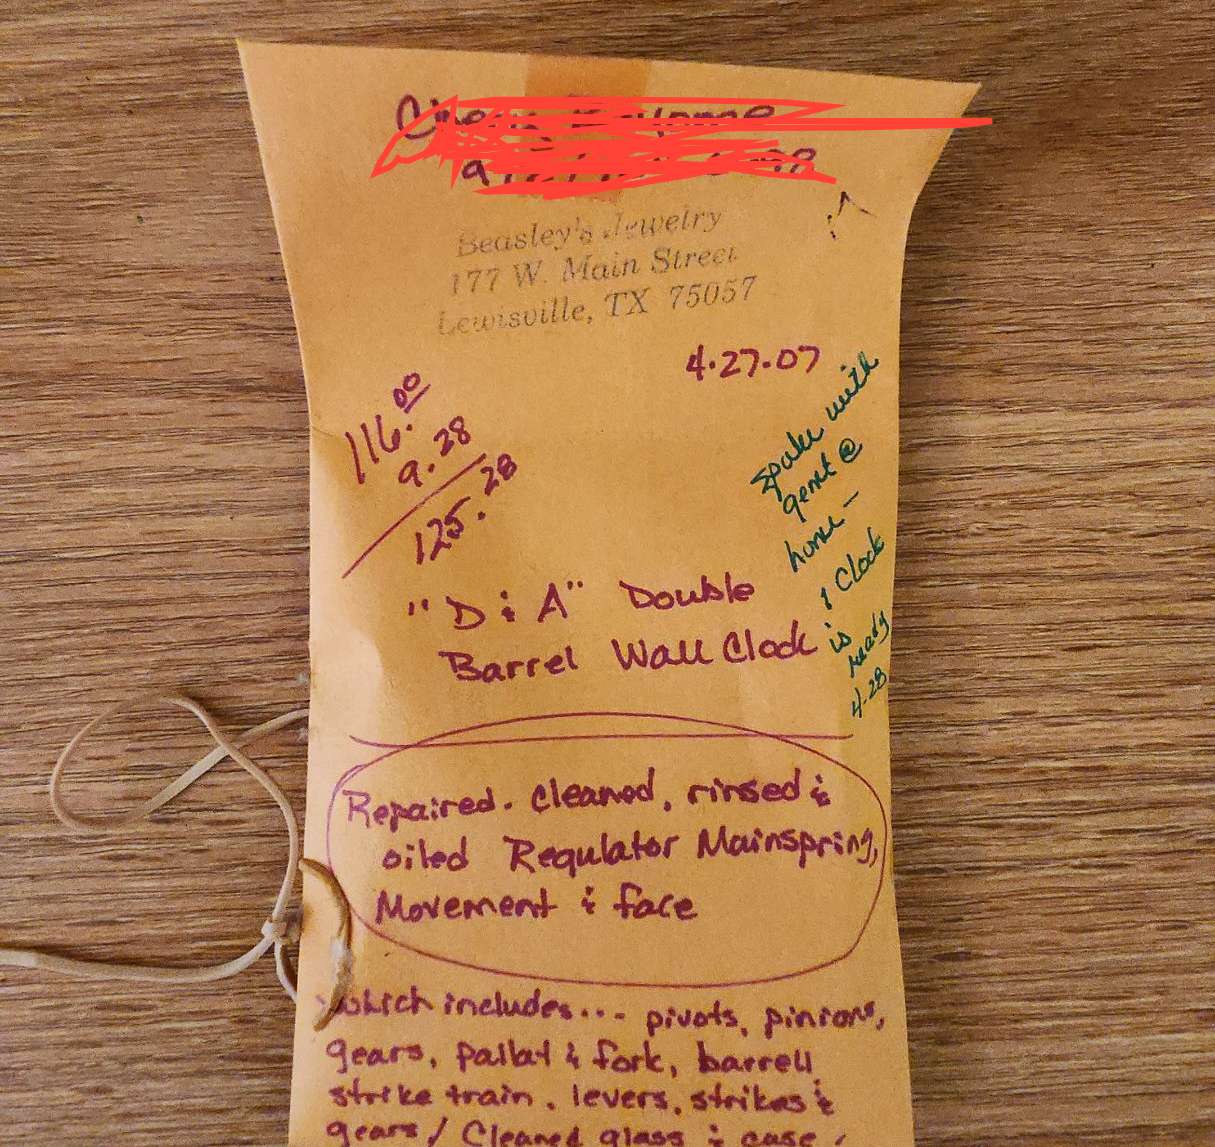 Beasley's Jewelry
177 W. Main Street
Lewisville, TX 75057
4.27.07
116.00
9.28
125.28
spoke with
gent @
home –
1 Clock
is
ready
4-28
"D & A" Double
Barrel Wall Clock
Repaired. Cleaned, rinsed &
oiled Regulator Mainspring,
Movement & face
which includes... pivots, pinions,
gears, pallat & fork, barrell
strike train, levers, strikes &
gears / Cleaned glass & case